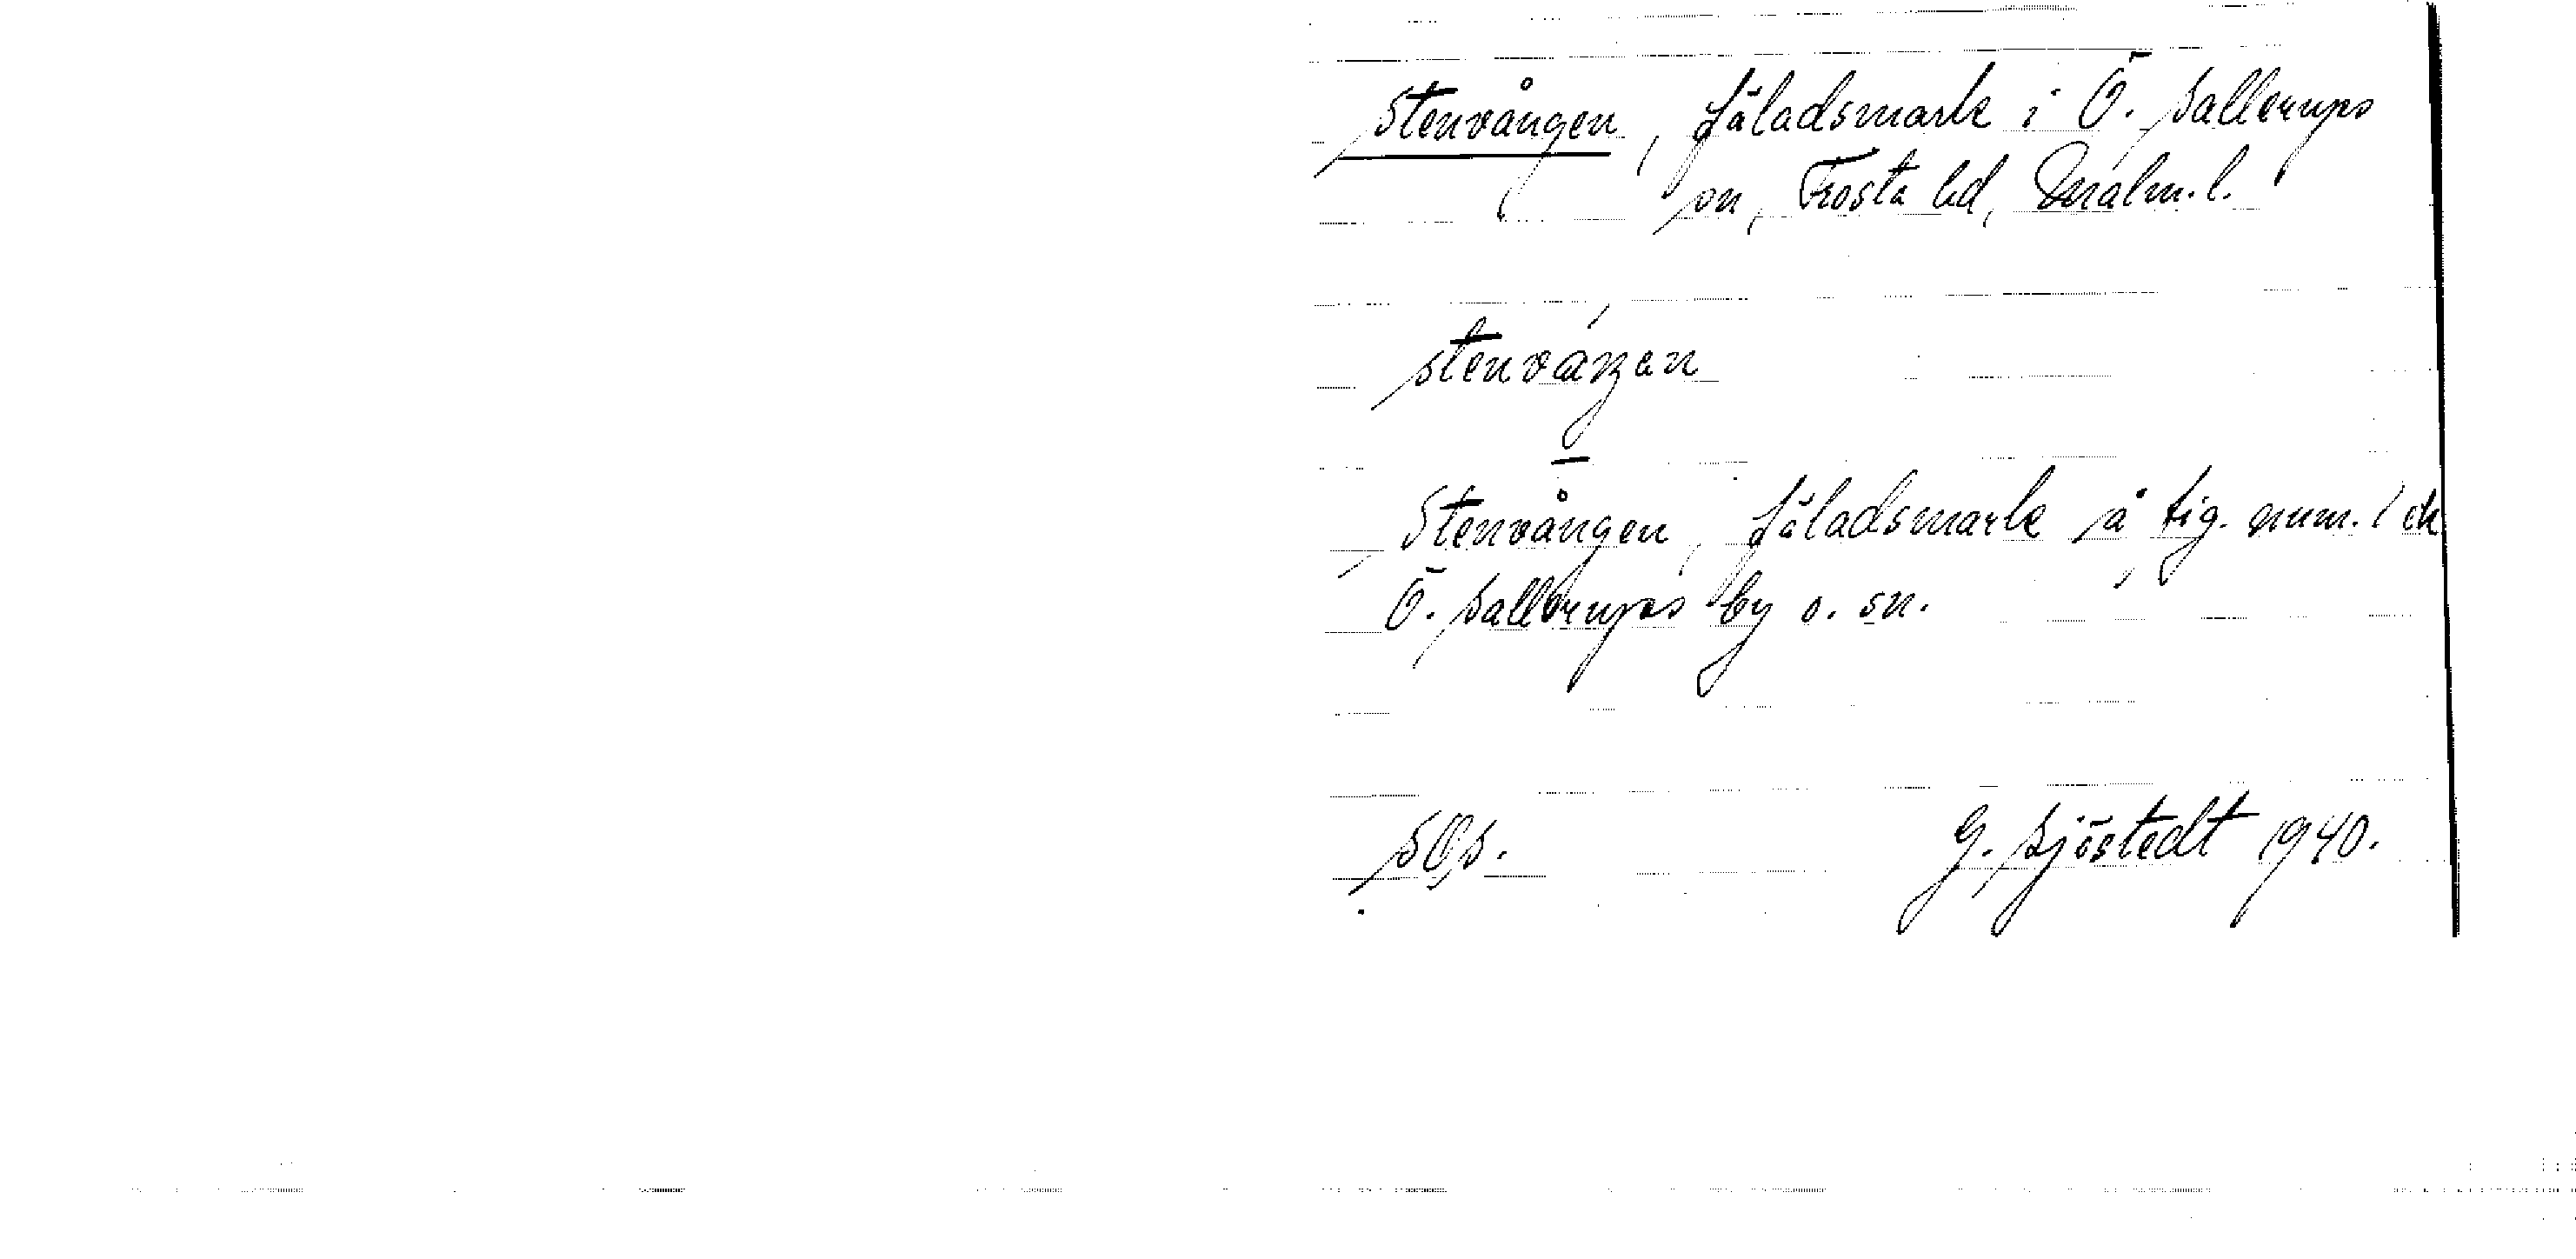 Stenvången, fäladsmark i Ö. Sallerups
sn, Frosta hd, Malm. l.
stenváŋan
Stenvången, fäladsmark å äg. num. 1 ch
Ö. Sallerups by o. sn.
SOS. G. Sjöstedt 1940.